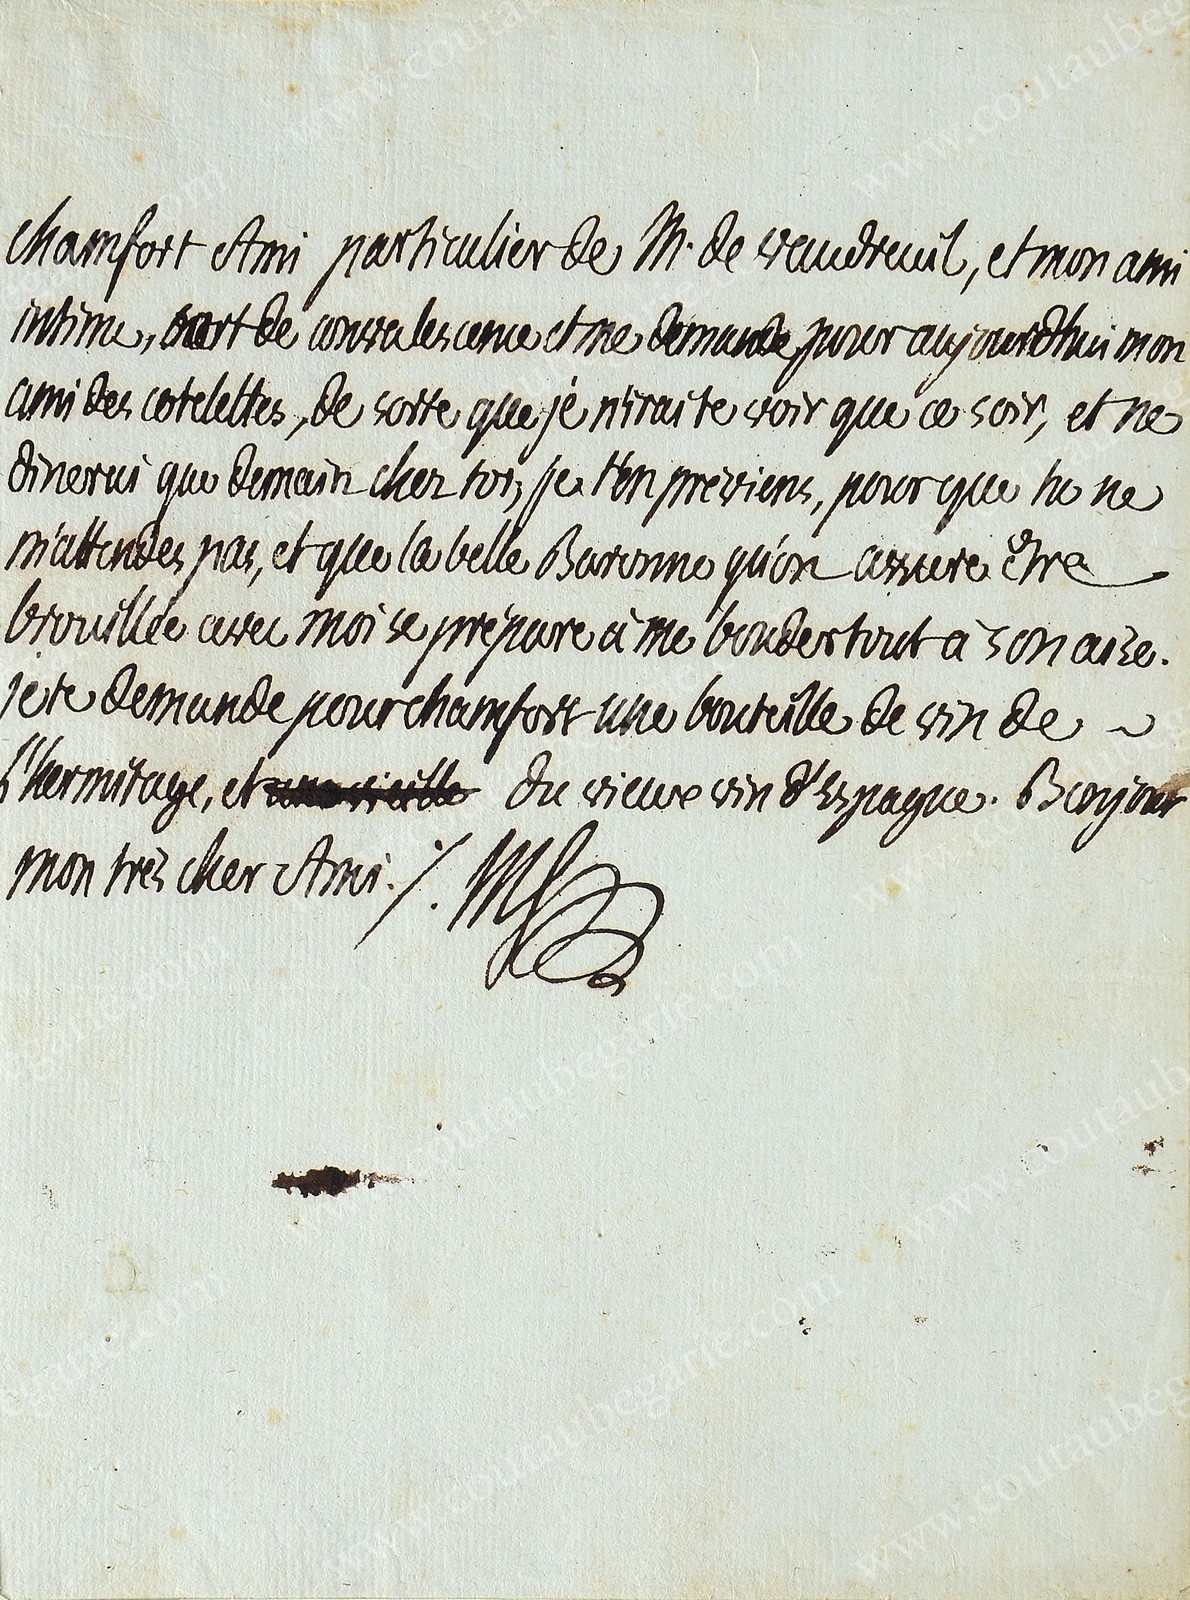 chamfort Ami particulier de M. de vaudreuil, et mon ami
intime, sort de convalescence et me demande pour aujourdhui mon
ami des cotelettes, de sorte que je n'irai te voir que ce soir, et ne
dinerai que demain chez toi, je t'en previens, pour que tu ne
m'attendes pas, et que la belle Baronne qu'on assure être
brouillée avec moi se prépare à me bouder tout à son aise.
je te demande pour chamfort une bouteille de vin de ~
l'hermitage, et une vieille du vieux vin d'Espagne. Bonjour
mon très cher Ami. ./.
www.coutaubegarie.com